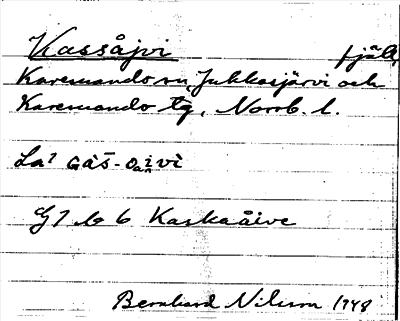 Kassåjvi fjäll,
Karesuando sn, Jukkasjärvi och
Karesuando tg, Norrb. l.
La? gas-oaivi
G7 b 6 Kaskaåive
Bernhard Nilsson 1948